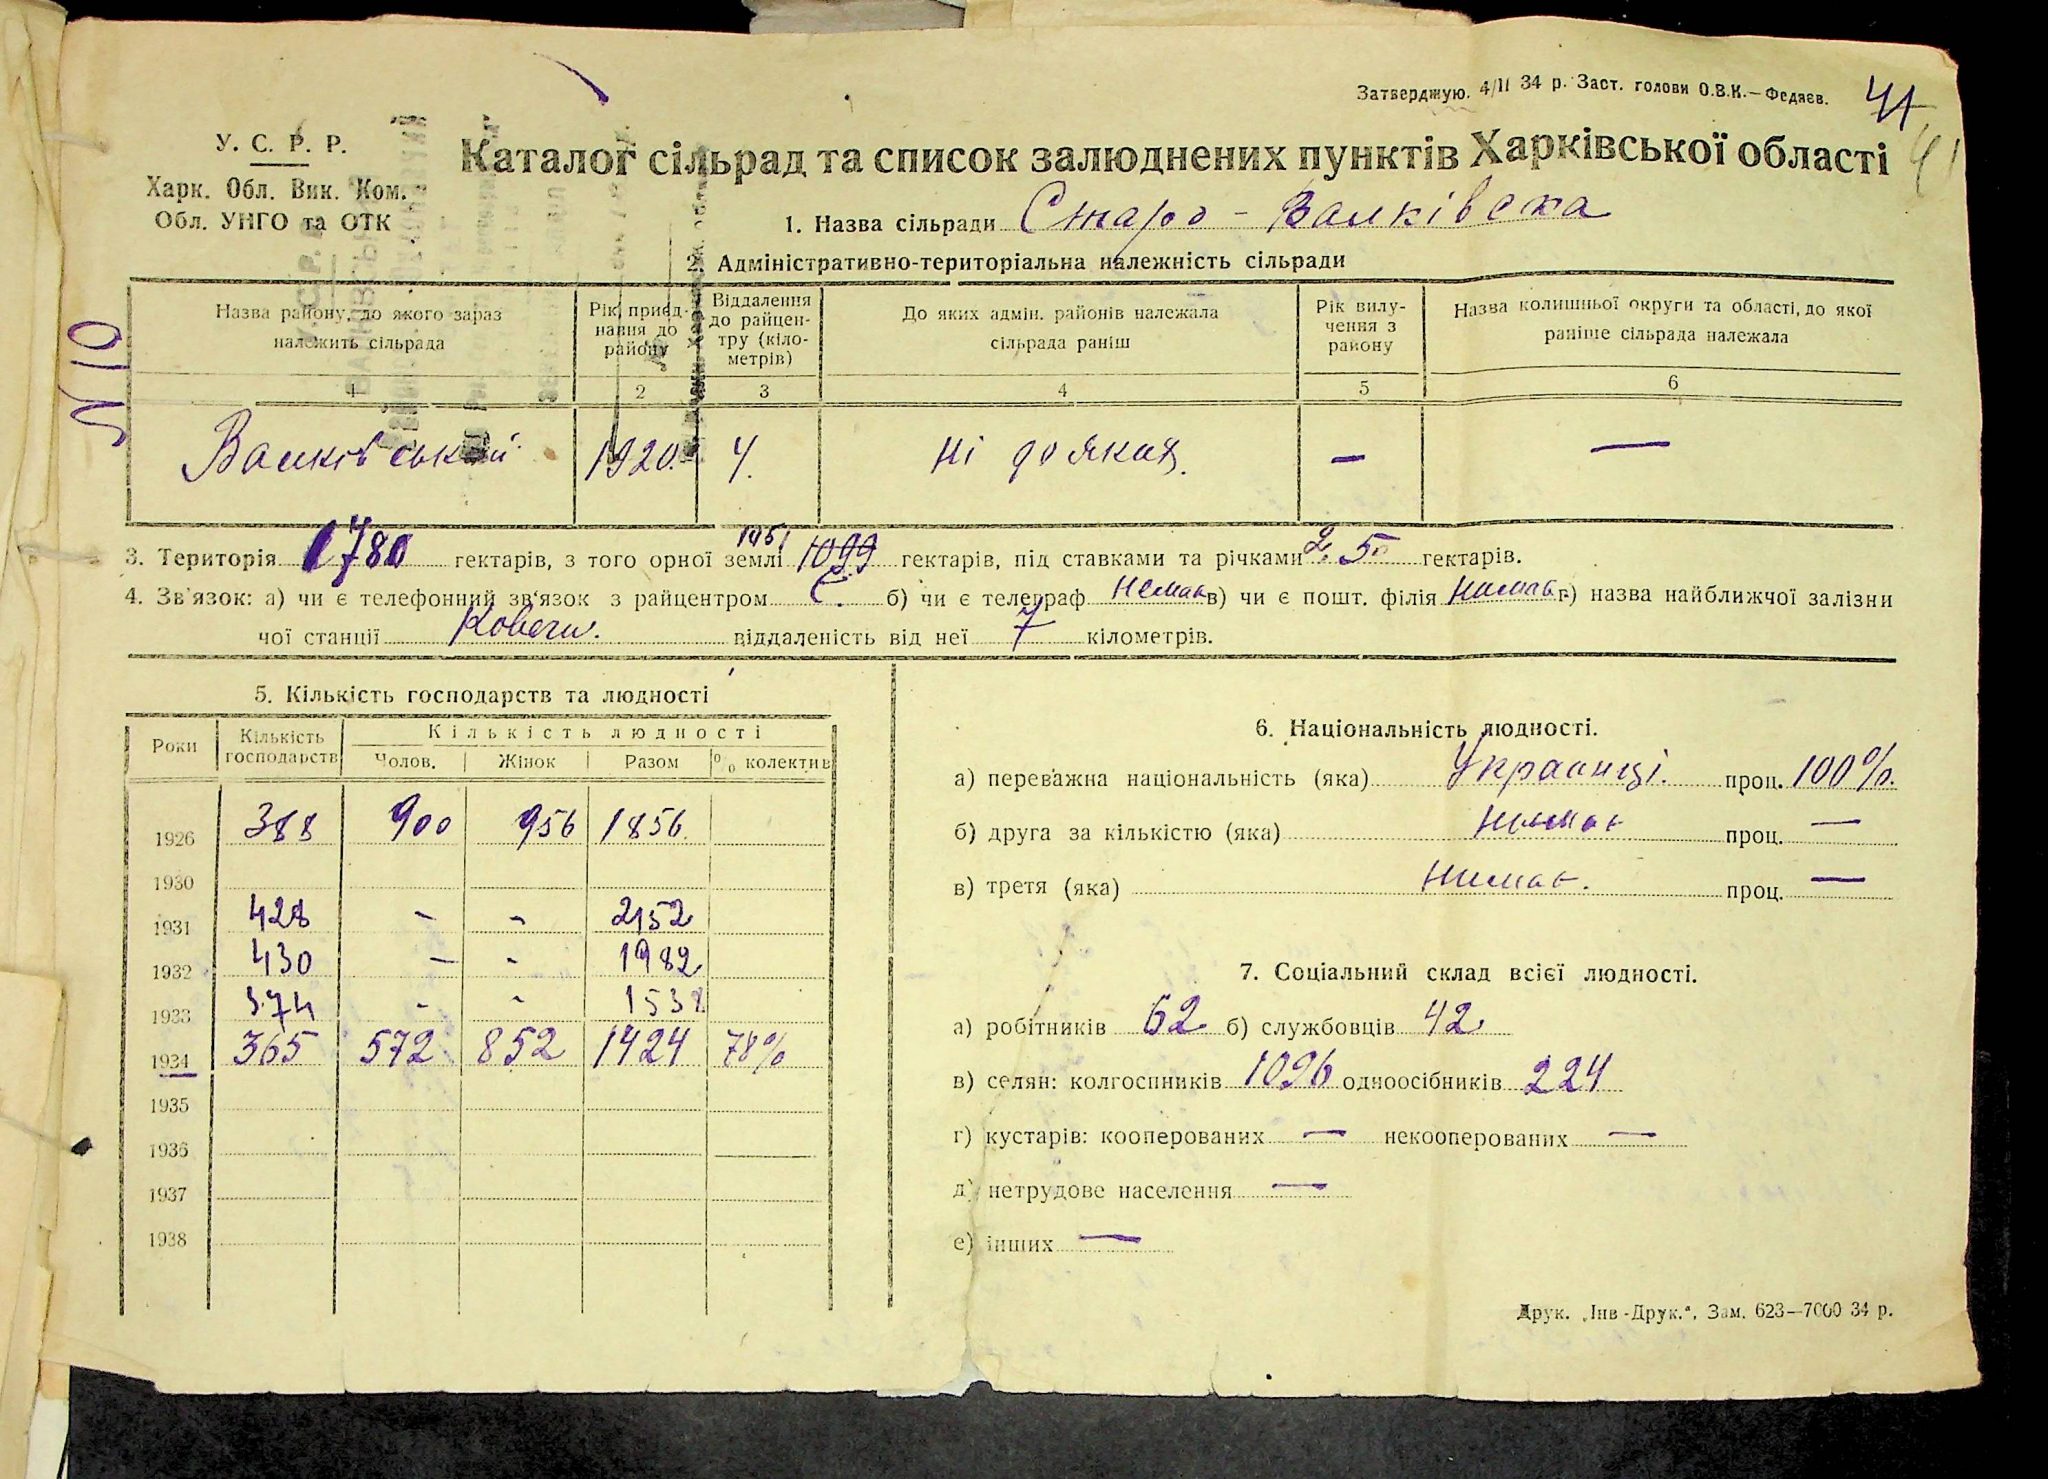 Затверджую. 4/II 34 р. Заст. голови О.В.К.— Федяєв.
41
У. С. Р. Р.
Харк. Обл. Вик. Ком.
Обл. УНГО та ОТК
Каталог сільрад та список залюднених пунктів Харківської області
1. Назва сільради Старо - Валківська
2. Адміністративно-територіальна належність сільради
N 10
Назва району, до якого зараз належить сільрада | Рік приєднання до району | Віддалення до райцентру (кілометрів) | До яких адмін. районів належала сільрада раніш | Рік вилучення з району | Назва колишньої округи та області, до якої раніше сільрада належала
1 | 2 | 3 | 4 | 5 | 6
Валківський | 1920. | 4. | Ні до яких. | — | —
3. Територія 1780 гектарів, з того орної землі 1099 гектарів, під ставками та річками 2,5 гектарів.
4. Зв'язок: а) чи є телефонний зв'язок з райцентром Є. б) чи є телеграф Немає в) чи є пошт. філія Нимає г) назва найближчої залізни
чої станції Ковеги. віддаленість від неї 7 кілометрів.
5. Кількість господарств та людності
Роки | Кількість господарств | Кількість людності
Чолов. | Жінок | Разом | % колектив
1926 | 388 | 900 | 956 | 1856.
1930
1931 | 428 | - | - | 2152
1932 | 430 | — | - | 1982
1933 | 374 | - | - | 1538
1934 | 365 | 572 | 852 | 1424 | 78%
1935
1936
1937
1938
6. Національність людності.
а) переважна національність (яка) Украинці. проц. 100%.
б) друга за кількістю (яка) нимає проц. —
в) третя (яка) нимає. проц. —
7. Соціальний склад всієї людності.
а) робітників 62 б) службовців 42.
в) селян: колгоспників 1096 одноосібників 224
г) кустарів: кооперованих — некооперованих —
д) нетрудове населення —
е) інших —
Друк. „Інв-Друк.", Зам. 623—7000 34 р.